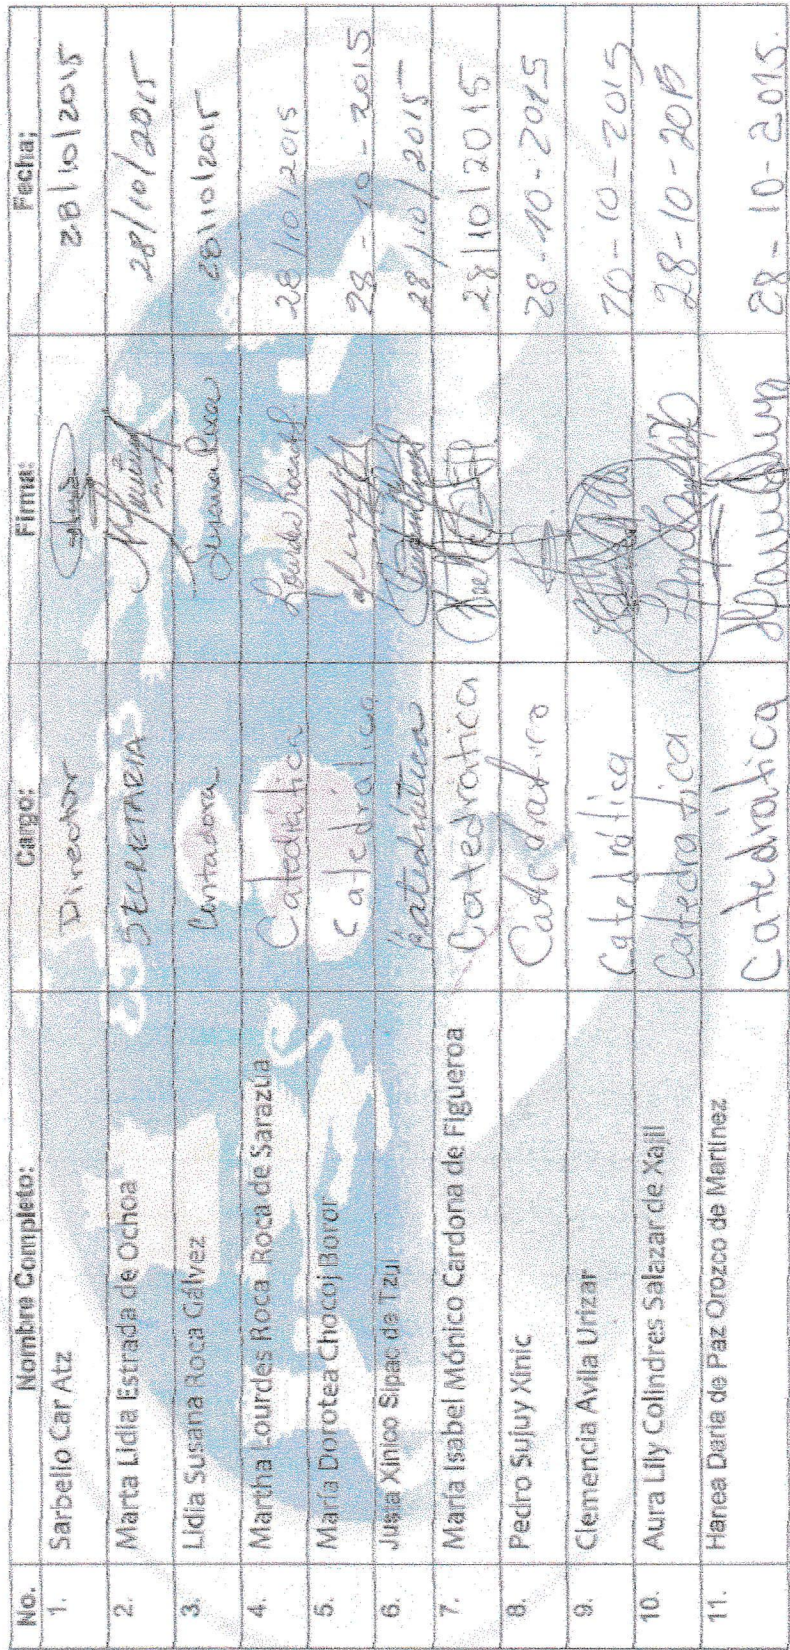 No. Nombre Completo: Cargo: Firma: Fecha:
1. Sarbelio Car Atz Director 28/10/2015
2. Marta Lidia Estrada de Ochoa SECRETARIA 28/10/2015
3. Lidia Susana Roca Gálvez Contadora Susana Roca 28/10/2015
4. Martha Lourdes Roca Roca de Sarazúa Catedrática 28/10/2015
5. María Dorotea Chocoj Boror Catedrática 28-10-2015
6. Justa Xinico Sipac de Tzul Catedrática 28/10/2015
7. María Isabel Mónico Cardona de Figueroa Catedratica 28/10/2015
8. Pedro Sujuy Xinic Catedratico 28-10-2015
9. Clemencia Avila Urizar Catedrática 20-10-2015
10. Aura Lily Colindres Salazar de Xajil Catedratica 28-10-2015
11. Hanea Daria de Paz Orozco de Martinez Catedrática 28-10-2015.